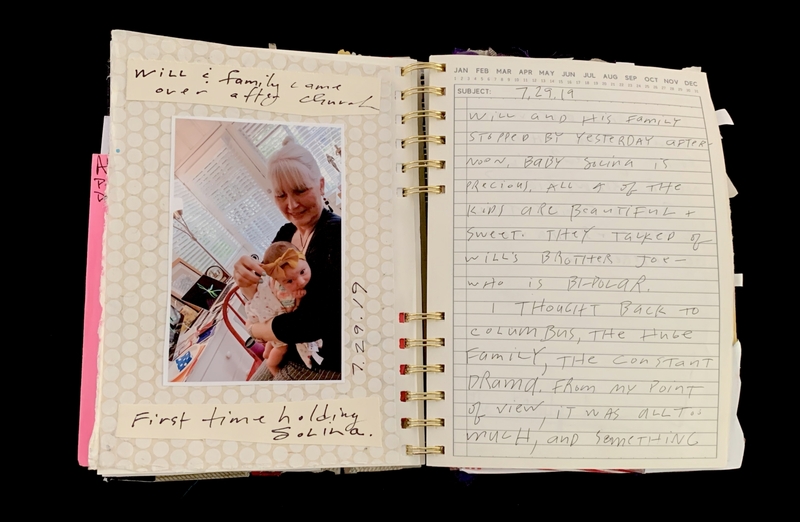 Will & family came
over after church
7.29.19
First time holding
Solina.
JAN FEB MAR APR MAY JUN JUL AUG SEP OCT NOV DEC
SUBJECT: 7.29.19
Will and his family
stopped by yesterday after-
noon. Baby Solina is
precious. All 4 of the
kids are beautiful +
sweet. They talked of
Will's brother Joe -
who is bi-polar.
I thought back to
Columbus, the huge
family, the constant
drama. From my point
of view, it was all too
much, and something